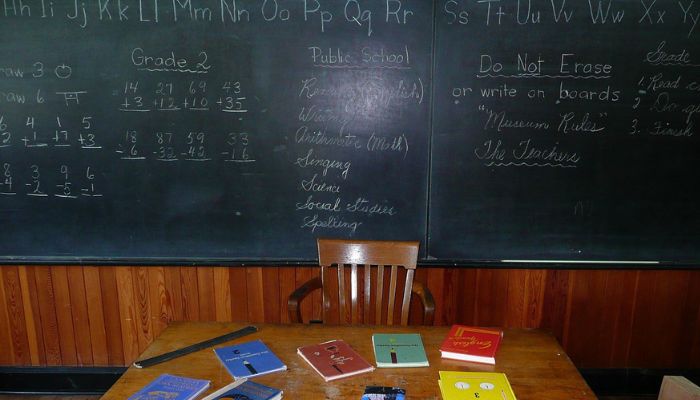 Hh Ii Jj Kk Ll Mm Nn Oo Pp Qq Rr Ss Tt Uu Vv Ww Xx Yy
raw 3
raw 6
Grade 2
14 27 69 43
+3 +12 +10 +35
18 87 59 33
-6 -33 -42 -16
6 4 1 5
2 -1 +7 +3
8 3 9 6
-4 -2 -5 -1
Public School
Reading (English)
Writing
Arithmetic (Math)
Singing
Science
Social Studies
Spelling
Do Not Erase
or write on boards
"Museum Rules"
The Teachers
Grade
1. Read
2. Do
3. Finish
English